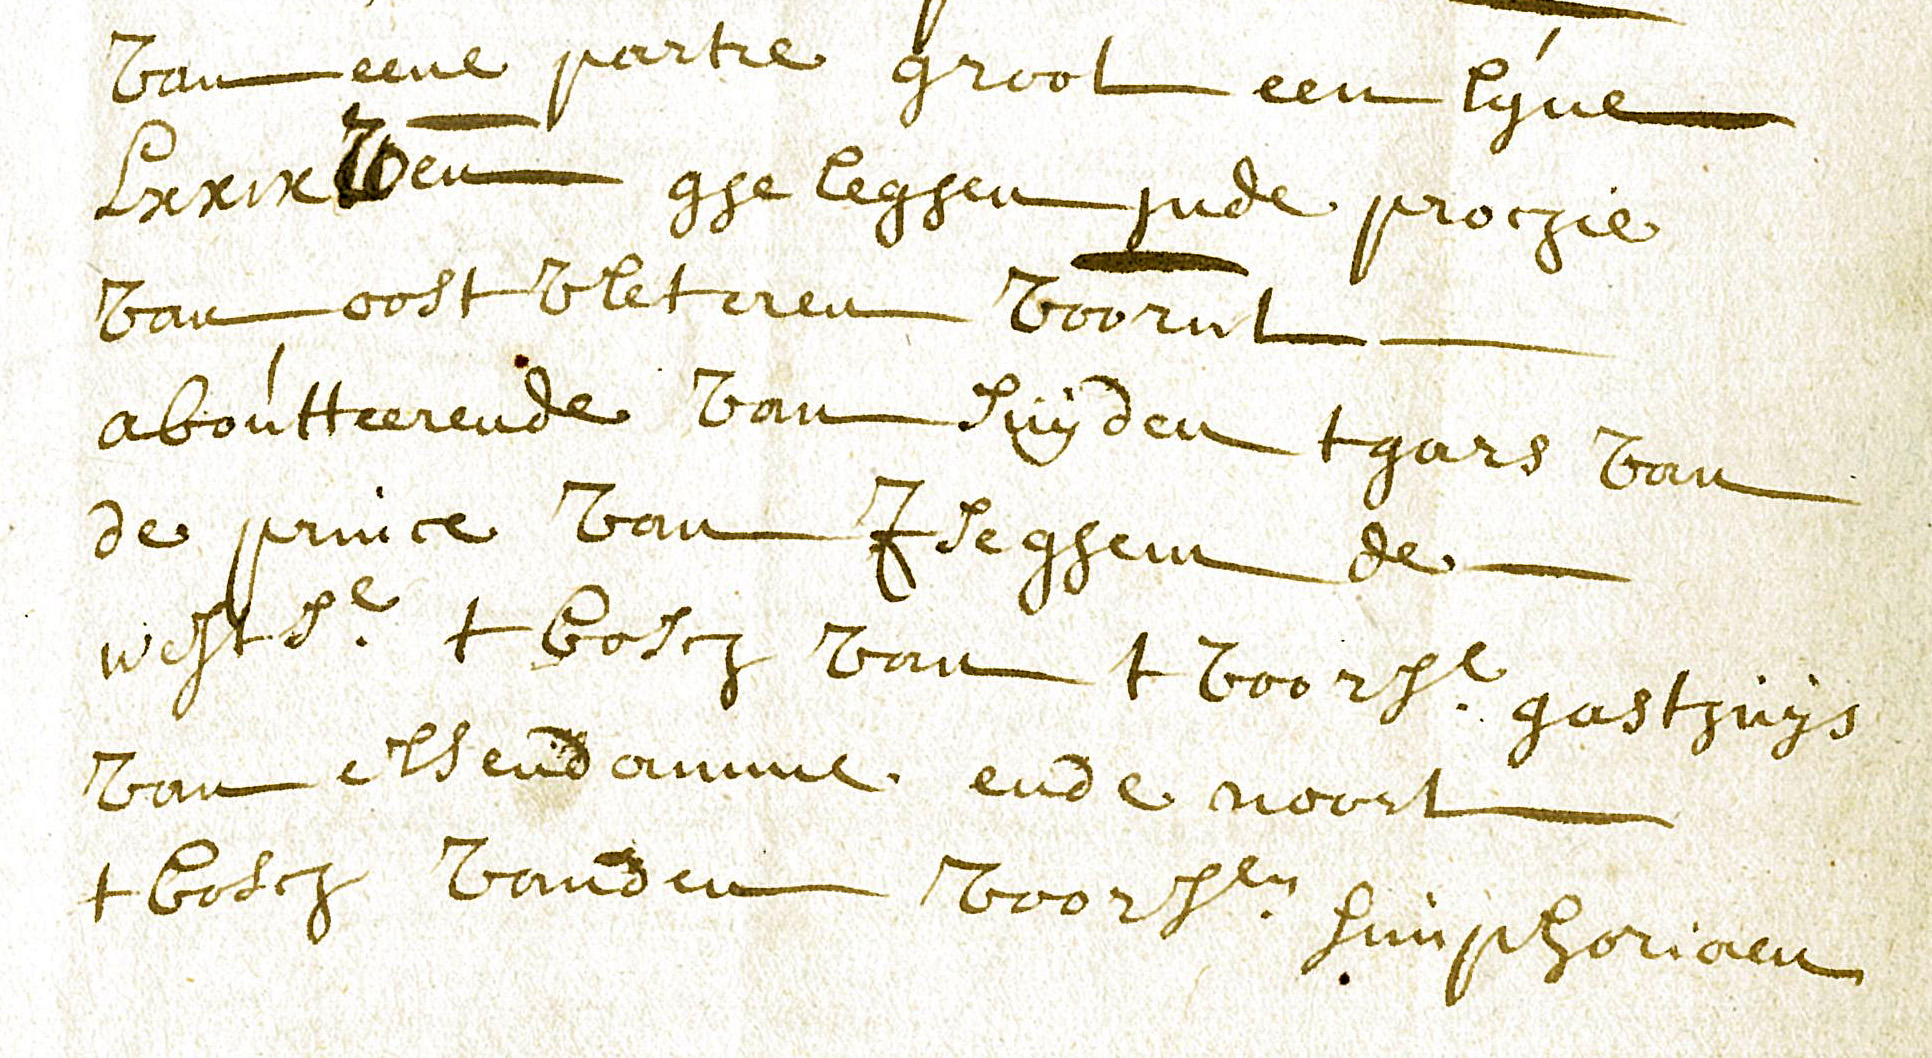 van eene partie groot een lyne
Lxxix Ven ghelegghen jnde prochie
van oostvleteren voornt
aboutteerende van suyden tgars van
de prince van Jseghem de
westse. tbosch van tvoorse. gasthuijs
van elsendamme ende noort
tbosch vanden voorsen. simphoriaen